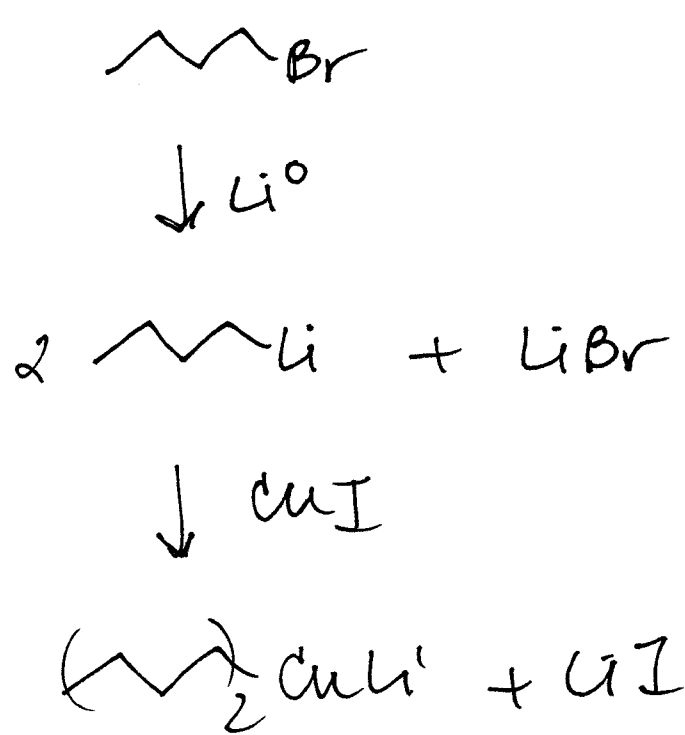 Br
Li⁰
2 Li + LiBr
CuI
( )₂ CuLi + LiI